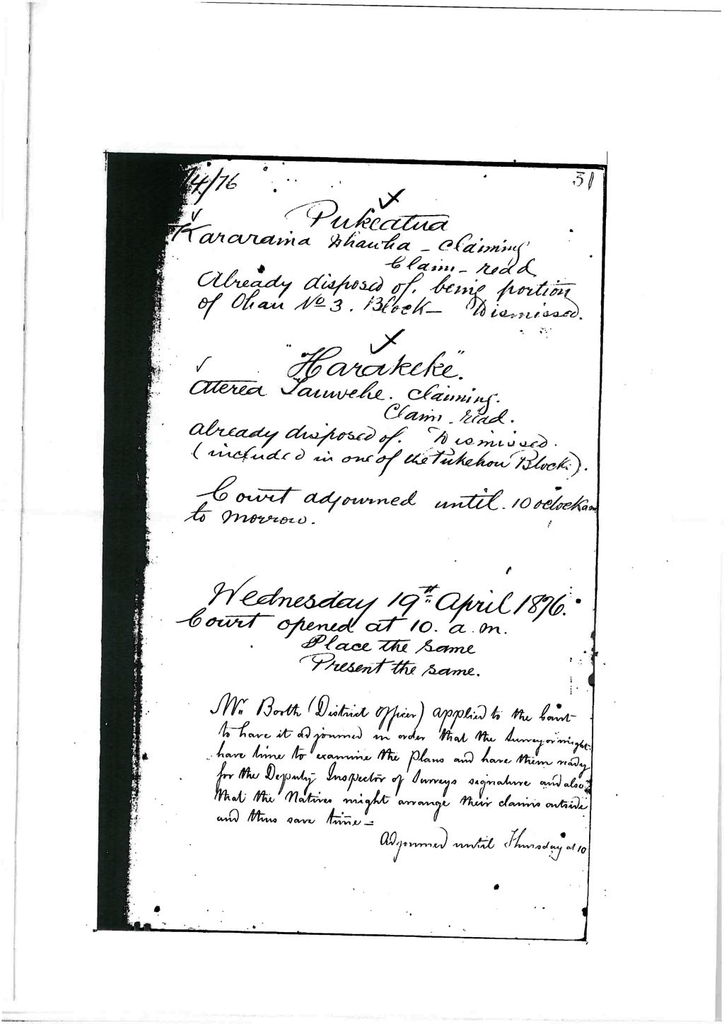 4/76
31
Pukeatua
Kararaina Whawha – claiming
Claim – read
Already disposed of, being portion
of Ohau No 3. Block – Dismissed.
"Harakeke".
Aterea Tauwehe. claiming.
Claim. read.
already disposed of. Dismissed.
(included in one of the Pukehou Block.).
Court adjourned until. 10 oclock am
to morrow.
Wednesday 19th April 1876.
Court opened at 10. a.m.
Place the same
Present the same.
Mr Booth (District officer) applied to the Court
to have it adjourned in order that the Surveyor might
have time to examine the Plans and have them ready
for the Deputy Inspector of Surveys signature and also
that the Natives might arrange their claims outside
and thus save time –
Adjourned until Thursday at 10